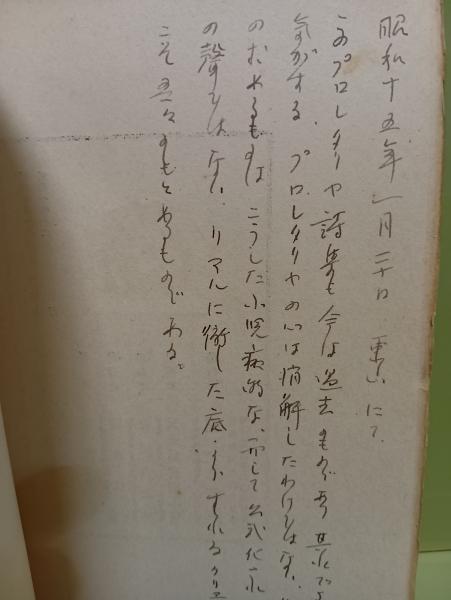 昭和十五年一月二十日 にて
このプロレタリヤ詩集も今は過去のものであり
気がする。プロレタリヤの心は解したわけではない
のもとめるものはこうした小児病的な、而して公式化
の聲ではない、リアルに徹した底から
こそ吾々のもとめるものである。